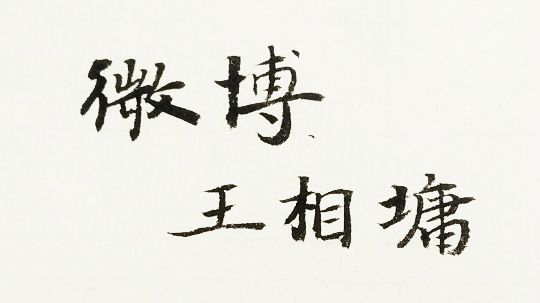 微博
王相墉